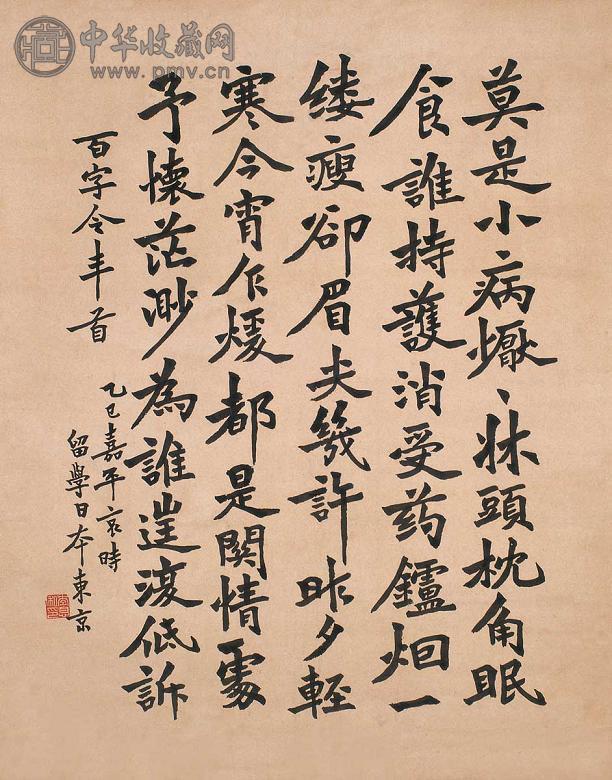 中华收藏网
www.pmv.cn
莫是小病懨、牀頭枕角眠
食誰持護消受药鑪烟一
缕瘦卻眉夫幾許昨夕輕
寒今宵乍煖都是関情處
予懷茫渺為誰淒低訴
百字令半首
乙巳嘉平哀時
留學日本東京